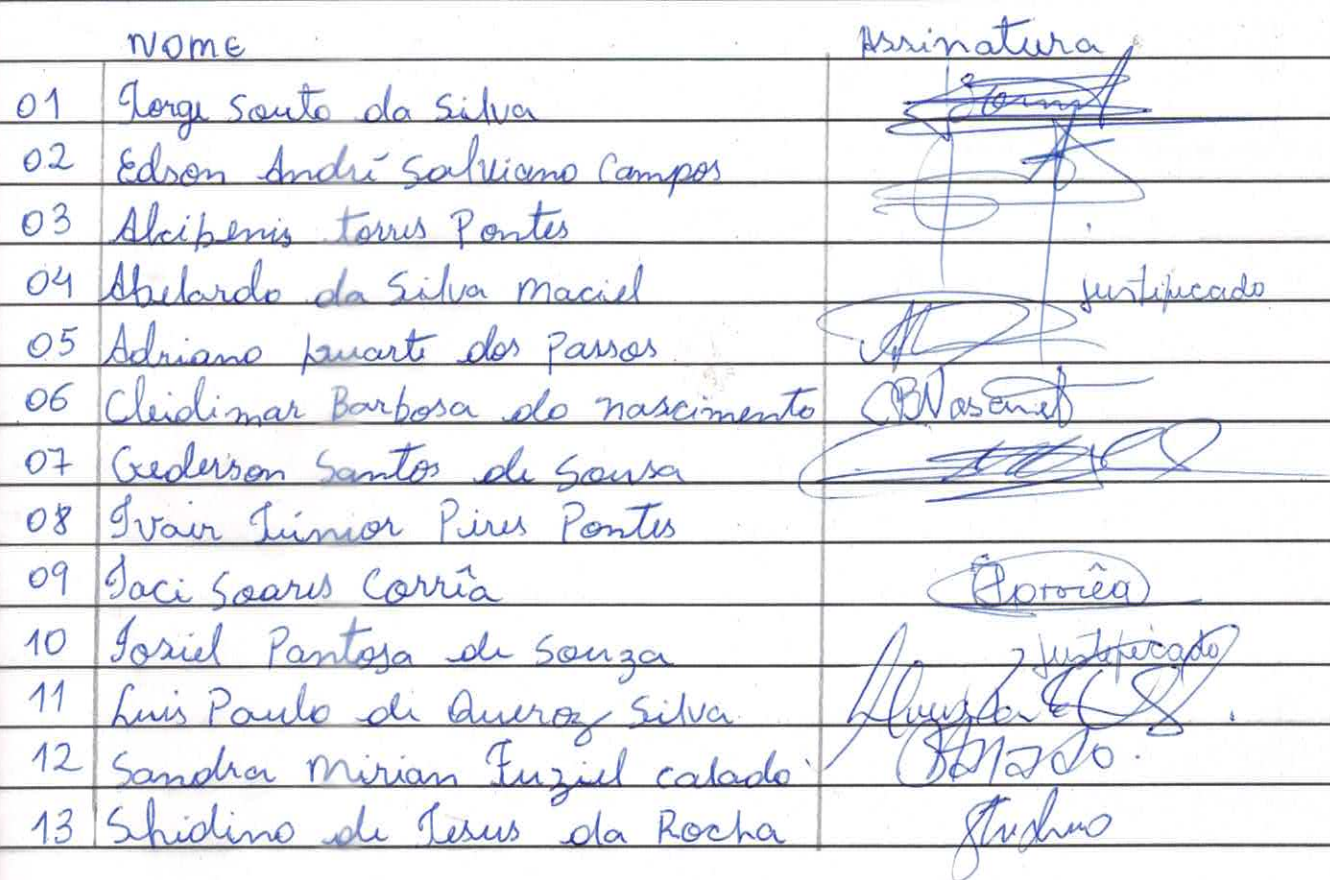 Nome Assinatura
01 Jorge Souto da Silva
02 Edson André Salviano Campos
03 Alcibenis Torres Pontes
04 Abelardo da Silva Maciel justificado
05 Adriano Duarte dos Passos
06 Cleidimar Barbosa do nascimento
07 Gederson Santos de Sousa
08 Ivair Júnior Pires Pontes
09 Jaci Soares Corrêa Corrêa
10 Josiel Pantoja de Souza justificado
11 Luis Paulo de Queroz Silva
12 Sandra Mirian Fuziel calado
13 Shidino de Jesus da Rocha